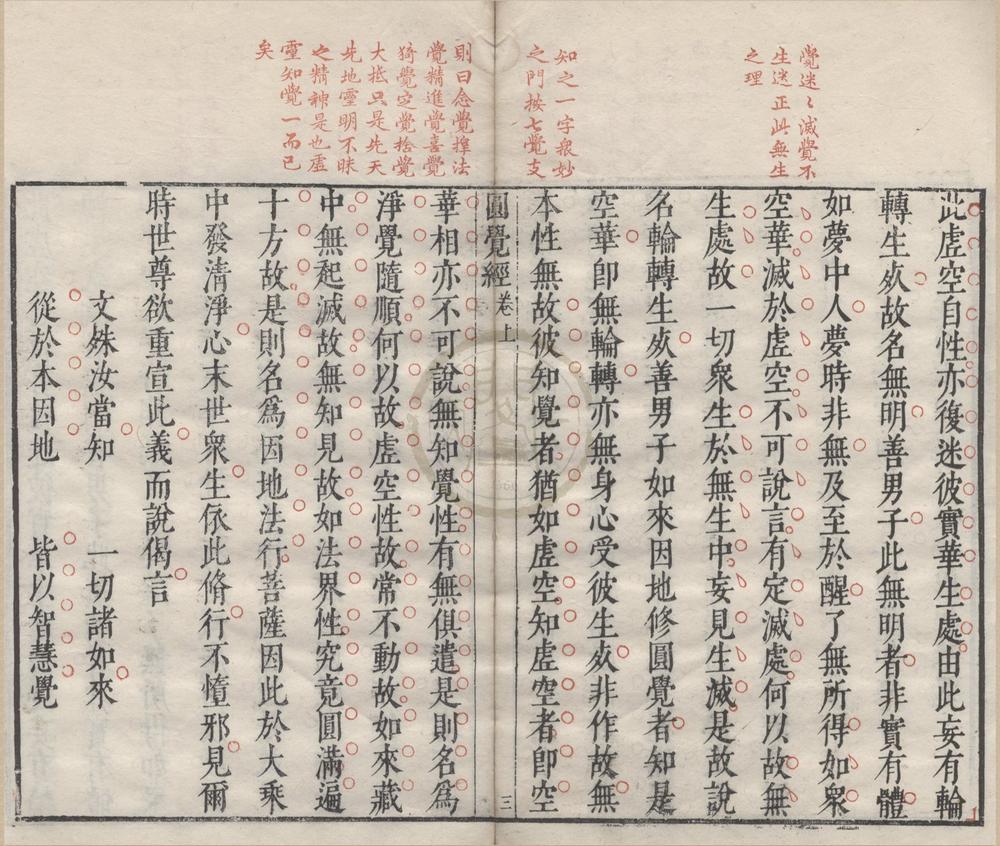 覺迷迷滅覺不
生迷正此無生
之理
知之一字衆妙
之門按七覺支
則曰念覺擇法
覺精進覺喜覺
猗覺定覺捨覺
大抵只是先天
先地靈明不昧
之精神是也虛
靈知覺一而已
矣
此虛空自性亦復迷彼實華生處由此妄有輪
轉生死故名無明善男子此無明者非實有體
如夢中人夢時非無及至於醒了無所得如衆
空華滅於虛空不可說言有定滅處何以故無
生處故一切衆生於無生中妄見生滅是故說
名輪轉生死善男子如來因地修圓覺者知是
空華卽無輪轉亦無身心受彼生死非作故無
本性無故彼知覺者猶如虛空知虛空者卽空
圓覺經 卷上 三
華相亦不可說無知覺性有無俱遣是則名爲
淨覺隨順何以故虛空性故常不動故如來藏
中無起滅故無知見故如法界性究竟圓滿遍
十方故是則名爲因地法行菩薩因此於大乘
中發淸淨心末世衆生依此脩行不墮邪見爾
時世尊欲重宣此義而說偈言
文殊汝當知 一切諸如來
從於本因地 皆以智慧覺